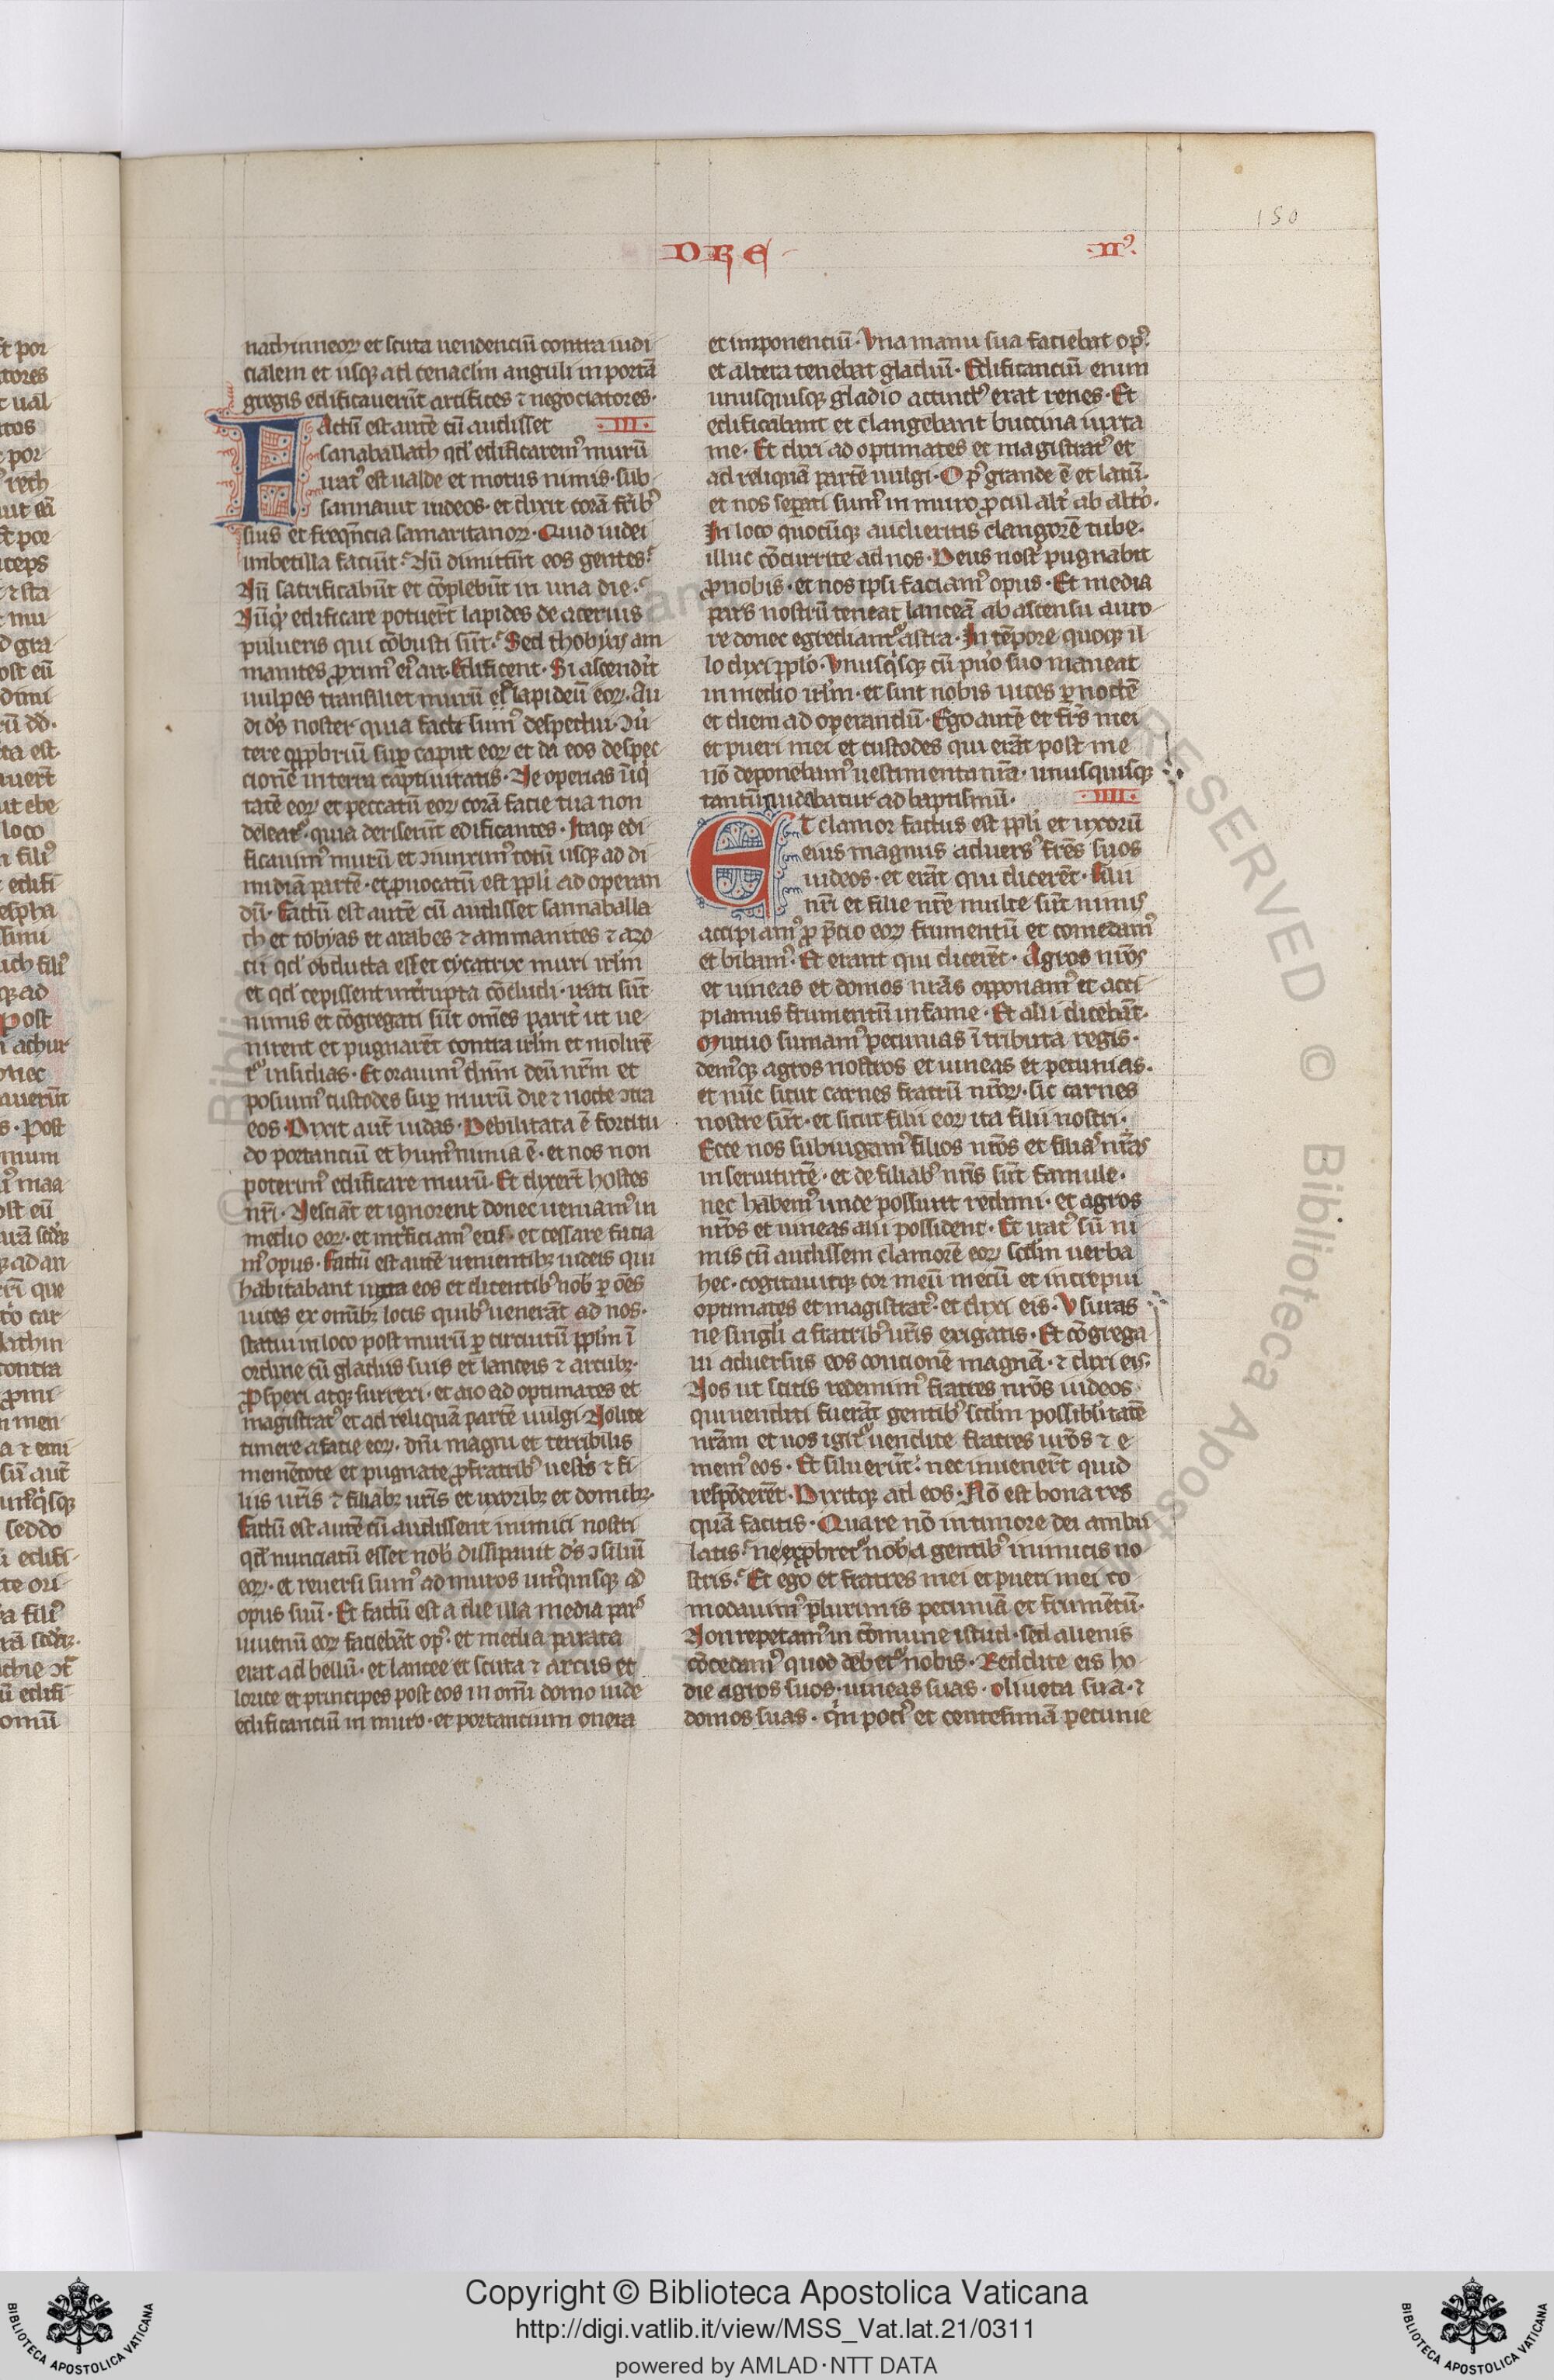 DRE
·II᷒·
150
nathinneoꝝ et scuta uendenciū contra iudi
cialem et usqꝫ ad cenaclm̄ anguli in portā
gregis edificauerūt artifices ⁊ negociatores·
FActū est autē cū audisset ·III·
sanaballath qd̓ edificaremꝰ murū
iratꝰ est ualde et motus nimis· sub
sannauit iudeos· et dixit corā frībꝰ
suis et freqn̄cia samaritanoꝝ· Quid iudei
imbecilla faciūt? Nū dimittūt eos gentes?
Nū sacrificabūt et cōplebūt in una die?
Nūqͥd edificare poterūt lapides de aceruis
pulueris qui cōbusti sūt? Sed thobyas am
manites ꝓximꝰ eiꝰ ait· Edificent· Si ascendͥt
uulpes transiliet murū eoꝝ lapideū eoꝝ· Au
di dꝰs noster quia facti sumꝰ despectui· ↄuͥ
tere opprobriū suꝑ caput eoꝝ et da eos despec
cionē in terra captiuitatis· Ne operias iͥqͥ
tatē eoꝝ et peccatū eoꝝ corā facie tua non
deleatᷣ· quia deriserūt edificantes· Itaqꝫ edi
ficauimꝰ murū et ↄiūximꝰ totū usqꝫ ad di
midiā partē· et ꝓuocatū est ppl̓i ad operan
dū· Factū est autē cū audisset sannaballa
th et tobyas et arabes ⁊ ammanites ⁊ azo
tii qd̓ obducta esset cycatryx muri irl̓m
et qd̓ cepissent inͭrupta cōcludi· irati sūt
nimis et cōgregati sūt om̄es parit̓ ut ue
nirent et pugnarēt contra irl̓m et molirē
tᷣ insidias· Et orauimꝰ dn̄m deū nr̄m et
posuimꝰ custodes suꝑ murū die ⁊ nocte ↄtra
eos· Dixit aut̄ iudas· Debilitata ē fortitu
do portanciū et humꝰ nimia ē· et nos non
poterimꝰ edificare murū· Et dixert̄ hostes
nr̄i· Nesciāt et ignorent donec ueniamꝰ in
medio eoꝝ· et int̓ficiamꝰ eos· et cessare facia
mꝰ opus· Factū est autē uenientibꝫ iudeis qui
habitabant iuxta eos et dicentibꝰ nob̓ ꝑ oēs
uices ex om̄ibꝫ locis quibꝰ uenerāt ad nos·
statui in loco post murū ꝑ circuitū ppl̓m ī
ordine cū gladiis suis et lanceis ⁊ arcubꝫ·
ꝓsperi atqꝫ surrexi· et aio ad optimates et
magistratꝰ et ad reliquā partē uulgi· Nolite
timere a facie eoꝝ· dn̄i magni et terribilis
memētote et pugnate ꝓ fratribꝰ uestͥs ⁊ fi
liis ur̄is ⁊ filiabꝫ ur̄is et uxoribꝫ et domibꝫ·
Factū est autē cū audissent inimici nostri
qd̓ nunciatū esset nob̓ dissipauit dꝰs ↄsiliū
eoꝝ· et reuersi sumꝰ ad muros unꝰquisqꝫ ad
opus suū· Et factū est a die illa media parˢ
iuuenū eoꝝ faciebāt opꝰ· et media parata
erat ad bellū· et lancee et scuta ⁊ arcus et
lorice et principes post eos in om̄i domo iude
edificanciū in muro· et portancium onera
et imponenciū· Vna manu sua faciebat opꝰ·
et altera tenebat gladiū· Edificanciū enim
unusquisqꝫ gladio accinctꝰ erat renes· Et
edificabant et clangebant buccina iuxta
me· Et dixi ad optimates et magistratꝰ et
ad reliquā partē uulgi· Opꝰ grande ē et latū·
et nos seꝑati sumꝰ in muro ꝓcul alt̓ ab alto·
In loco quocūqꝫ audieritis clangorē tube·
illuc cōcurrite ad nos· Deus nost̓ pugnabit
ꝓ nobis· et nos ipsi faciamꝰ opus· Et media
pars nostrū teneat lanceā ab ascensu auro
re donec egrediantᷣ astra· In tēpore quoqꝫ il
lo dixi ppl̓o· Vnusqͥsqꝫ cū puͦo suo maneat
in medio irl̓m· et sint nobis uices ꝑ noctē
et diem ad operandū· Ego autē et fr̄s mei
et pueri mei et custodes qui erāt post me
nō deponebamꝰ uestimenta nr̄a· unusquisqꝫ
tantū nudabatur ad baptismū· ·IIII·
ET clamor factus est ppl̓i et uxorū
eius magnus aduersꝰ fr̄es suos
iudeos· et erāt qui dicerēt· Filii
nr̄i et filie nr̄e multe sūt nimiˢ
accipiamꝰ ꝓ p̄cio eoꝝ frumentū et comedamꝰ
et bibamꝰ· Et erant qui dicerēt· Agros nr̄os
et uineas et domos nr̄as opponamꝰ et acci
piamus frumentū in fame· Et alii dicebāt·
Mutuo sumamꝰ pecunias ī tributa regis·
demꝰqꝫ agros nostros et uineas et pecunias·
et nūc sicut carnes fratrū nr̄oꝝ· sic carnes
nostre sūt· et sicut filii eoꝝ ita filii nostri·
Ecce nos subiugamꝰ filios nr̄os et filiaˢ nr̄as
in seruitutē· et de filiabꝰ nr̄is sūt famule·
nec habemꝰ unde possunt redimi· et agros
nr̄os et uineas alii possident· Et iratꝰ sū ni
mis cū audissem clamorē eoꝝ scd̓m uerba
hec· cogitauitqꝫ cor meū mecū et increpui
optimates et magistratꝰ· et dixi eis· Vsuras
ne singl̓i a fratribꝰ ur̄is exigatis· Et cōgrega
ui aduersus eos concionē magnā· ⁊ dixi eis·
Nos ut scitis redemimꝰ fratres nr̄os iudeos
qui uenditi fuerāt gentibꝰ scd̓m possiblitatē
nr̄am et uos igitᷣ uendite fratres ur̄os ⁊ e
memꝰ eos· Et siluerūt· nec inuenert̄ quid
respōderēt· Dixitqꝫ ad eos· Nō est bona res
quā facitis· Quare nō in timore dei ambu
latis? ne exprobretᷣ nob̓ a gentibꝰ inimicis no
stris? Et ego et fratres mei et pueri mei co
modauimꝰ plurimis pecuniā et frumētū·
Non repetamꝰ in cōmune istud· sed alienis
cōcedamꝰ quod debetᷣ nobis· Reddite eis ho
die agros suos· uineas suas· oliueta sua· ⁊
domos suas· qͥn pociꝰ et centesimā pecunie
Copyright © Biblioteca Apostolica Vaticana
http://digi.vatlib.it/view/MSS_Vat.lat.21/0311
powered by AMLAD·NTT DATA
BIBLIOTECA APOSTOLICA VATICANA
BIBLIOTECA APOSTOLICA VATICANA